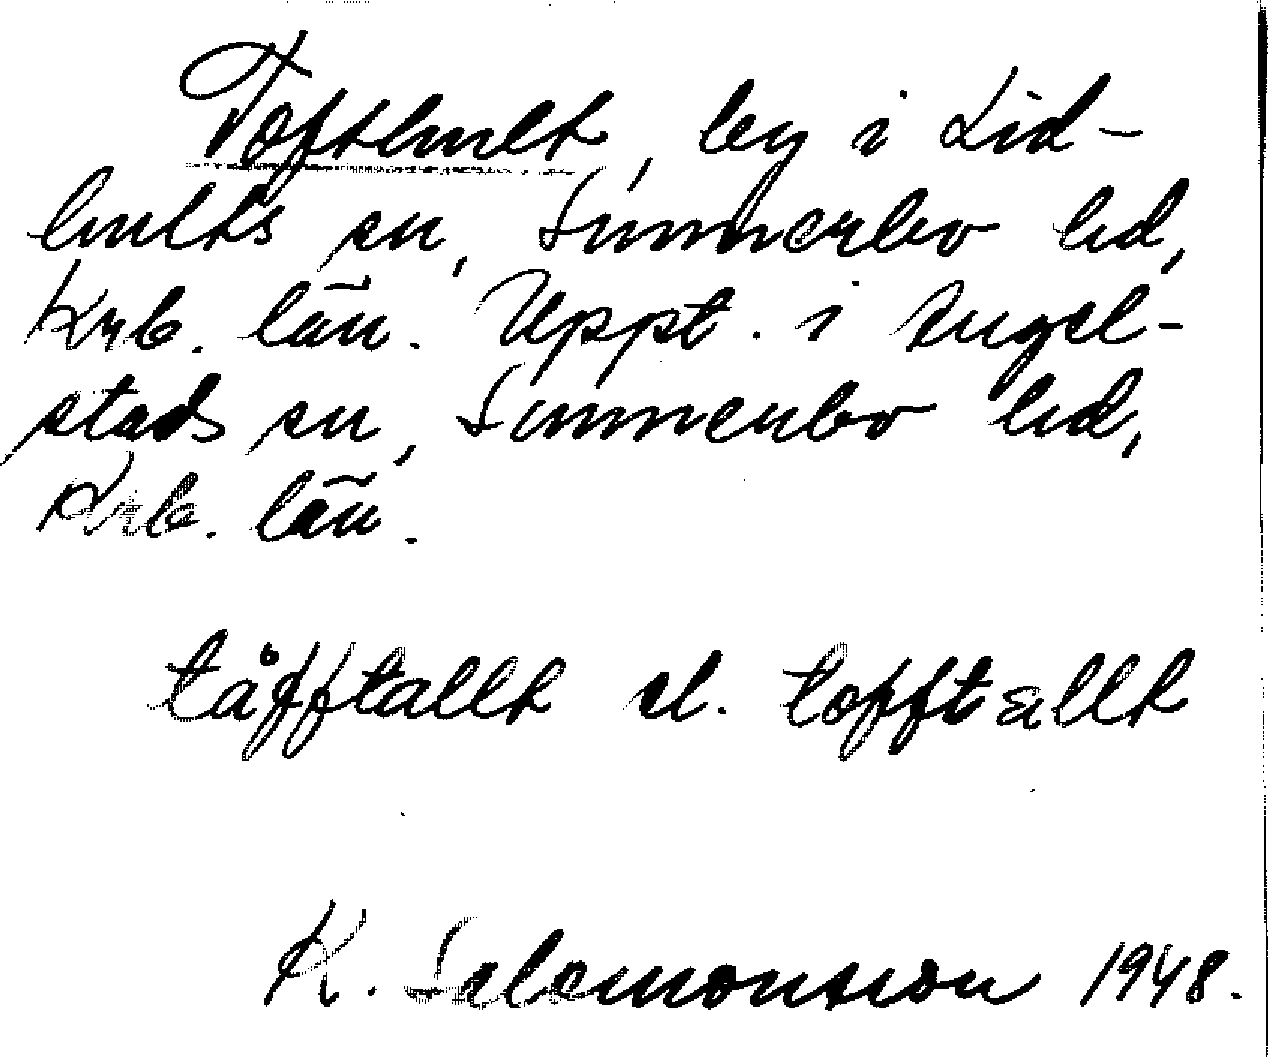 Tofthult, by i Lid-
hults sn, Sunnerbo hd,
Krb. län. Uppt. i Angel-
stads sn, Sunnerbo hd,
Krb. län.
tåfftallt el. tofftallt
K. Salomonsson 1948.